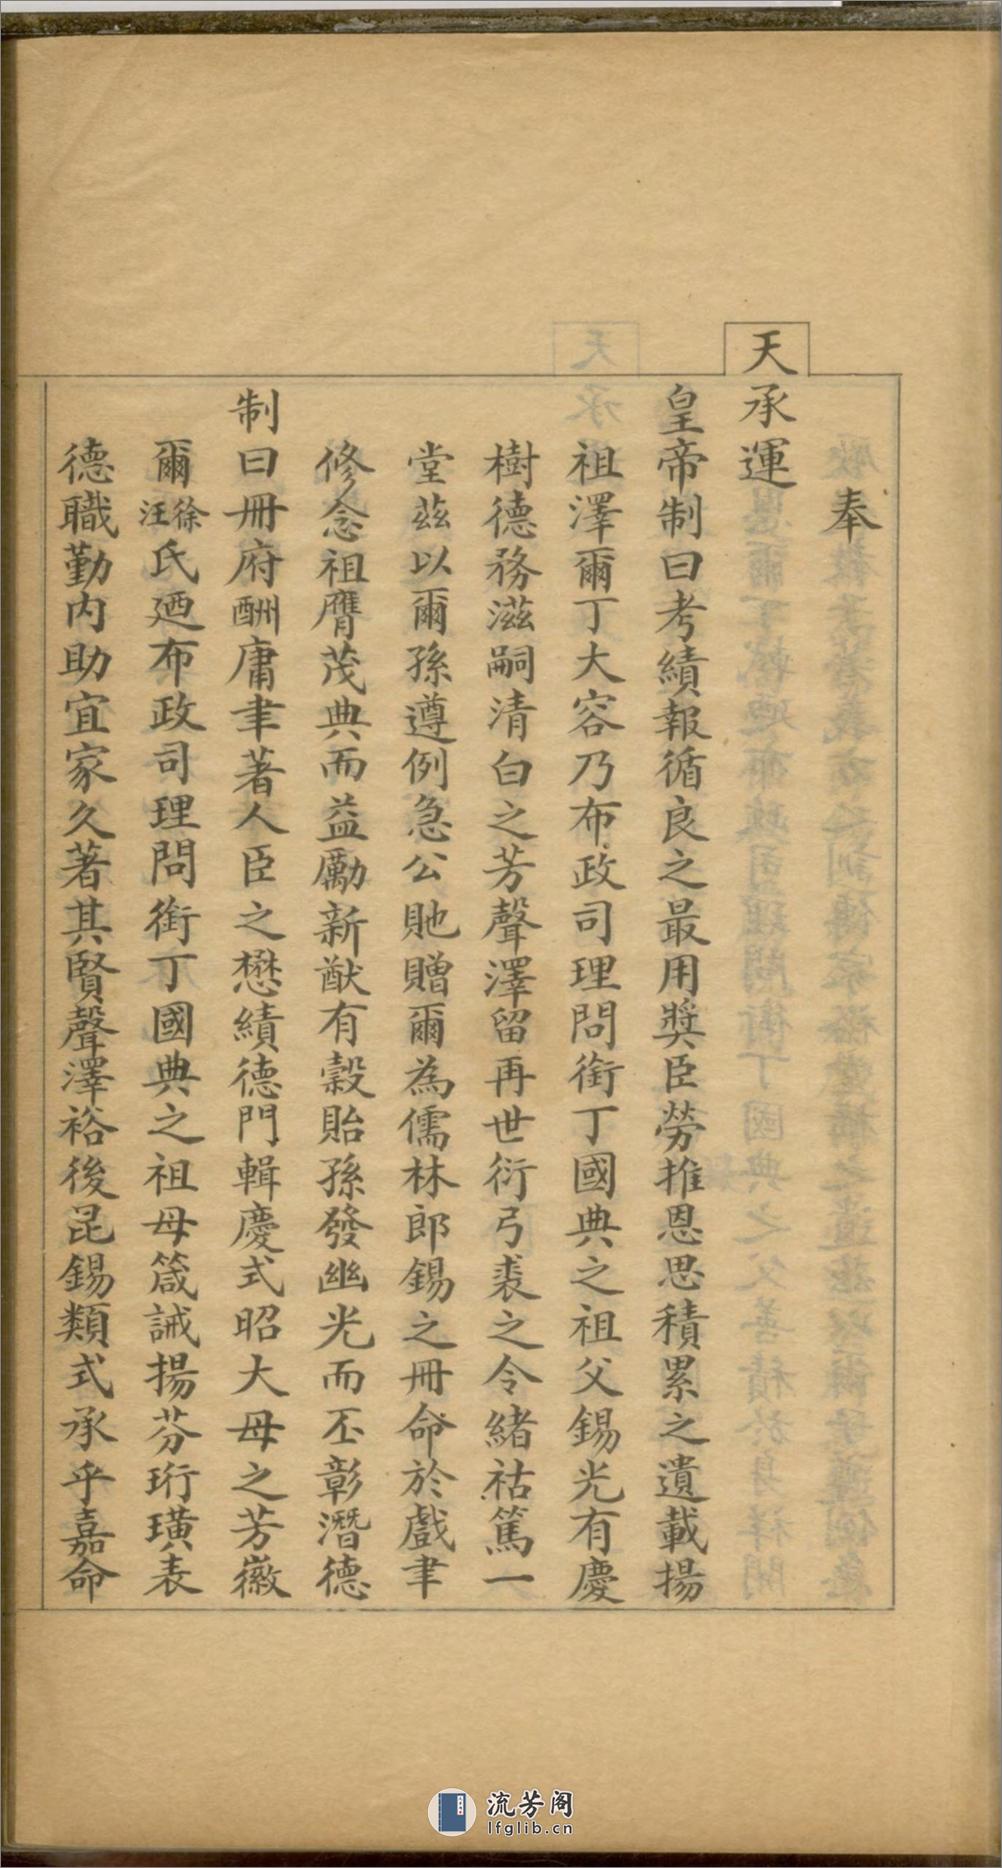 奉
天承運
皇帝制曰考績報循良之最用獎臣勞推恩思積累之遺載揚
祖澤爾丁大容乃布政司理問銜丁國典之祖父錫光有慶
樹德務滋嗣清白之芳聲澤留再世衍弓裘之令緒祜篤一
堂茲以爾孫遵例急公貤贈爾為儒林郎錫之冊命於戲聿
修念祖膺茂典而益勵新猷有穀貽孫發幽光而丕彰潛德
制曰冊府酬庸聿著人臣之懋績德門輯慶式昭大母之芳徽
爾徐汪氏廼布政司理問銜丁國典之祖母箴誡揚芬珩璜表
德職勤內助宜家久著其賢聲澤裕後昆錫類式承乎嘉命
流芳阁
lfglib.cn